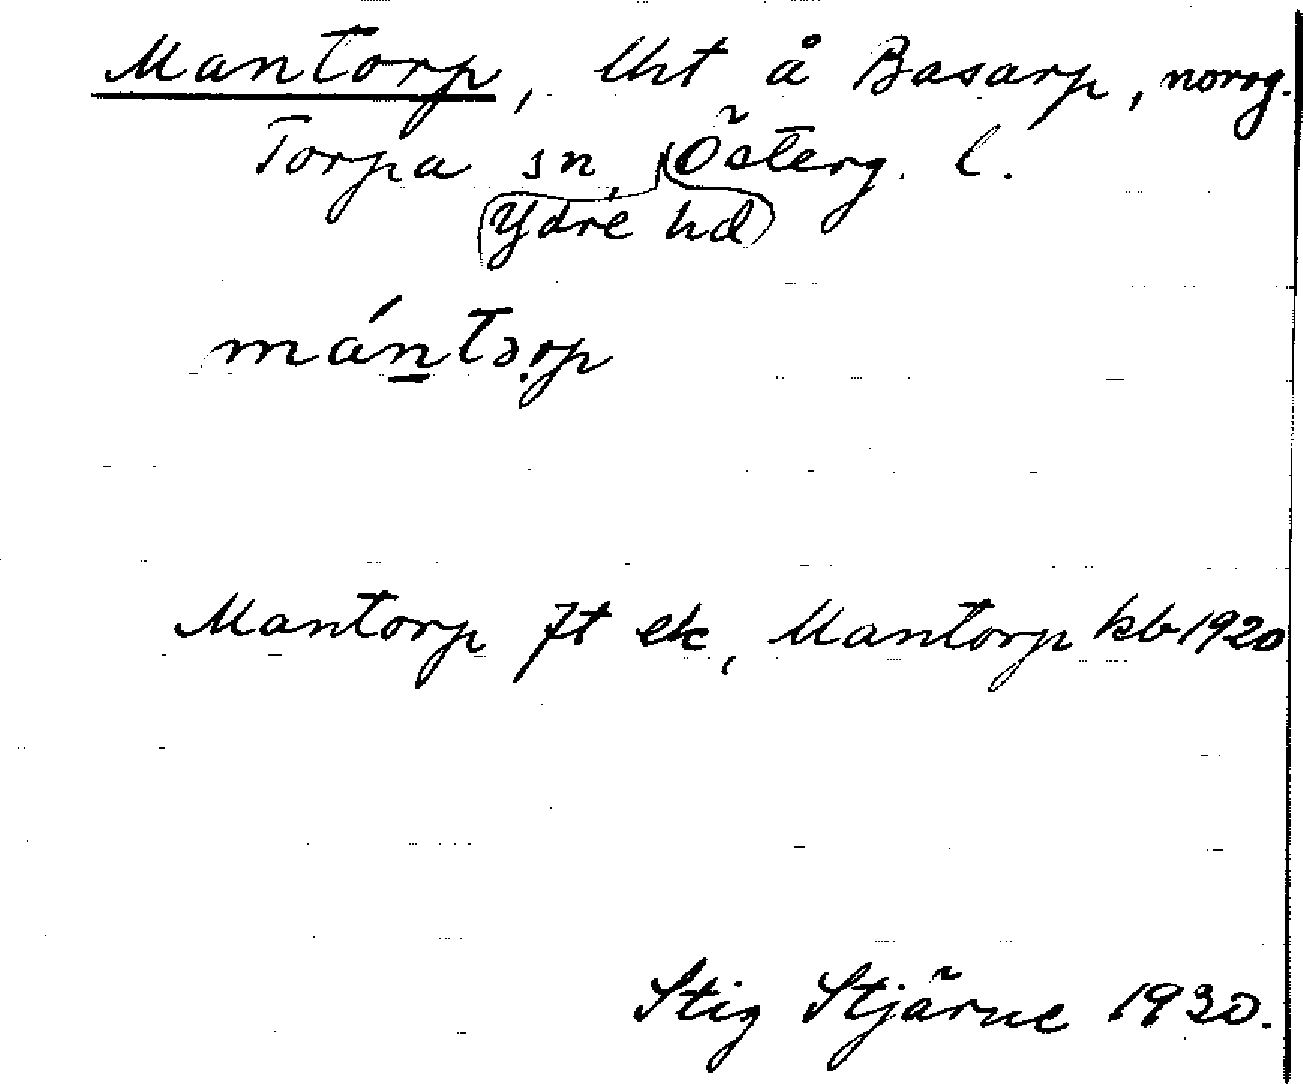 Mantorp, lht å Basarp, norrg.
Torpa sn, Österg. l.
Ydre hd
mántɔrp
Mantorp Jt ek, Mantorp kb 1920
Stig Stjärne 1930.